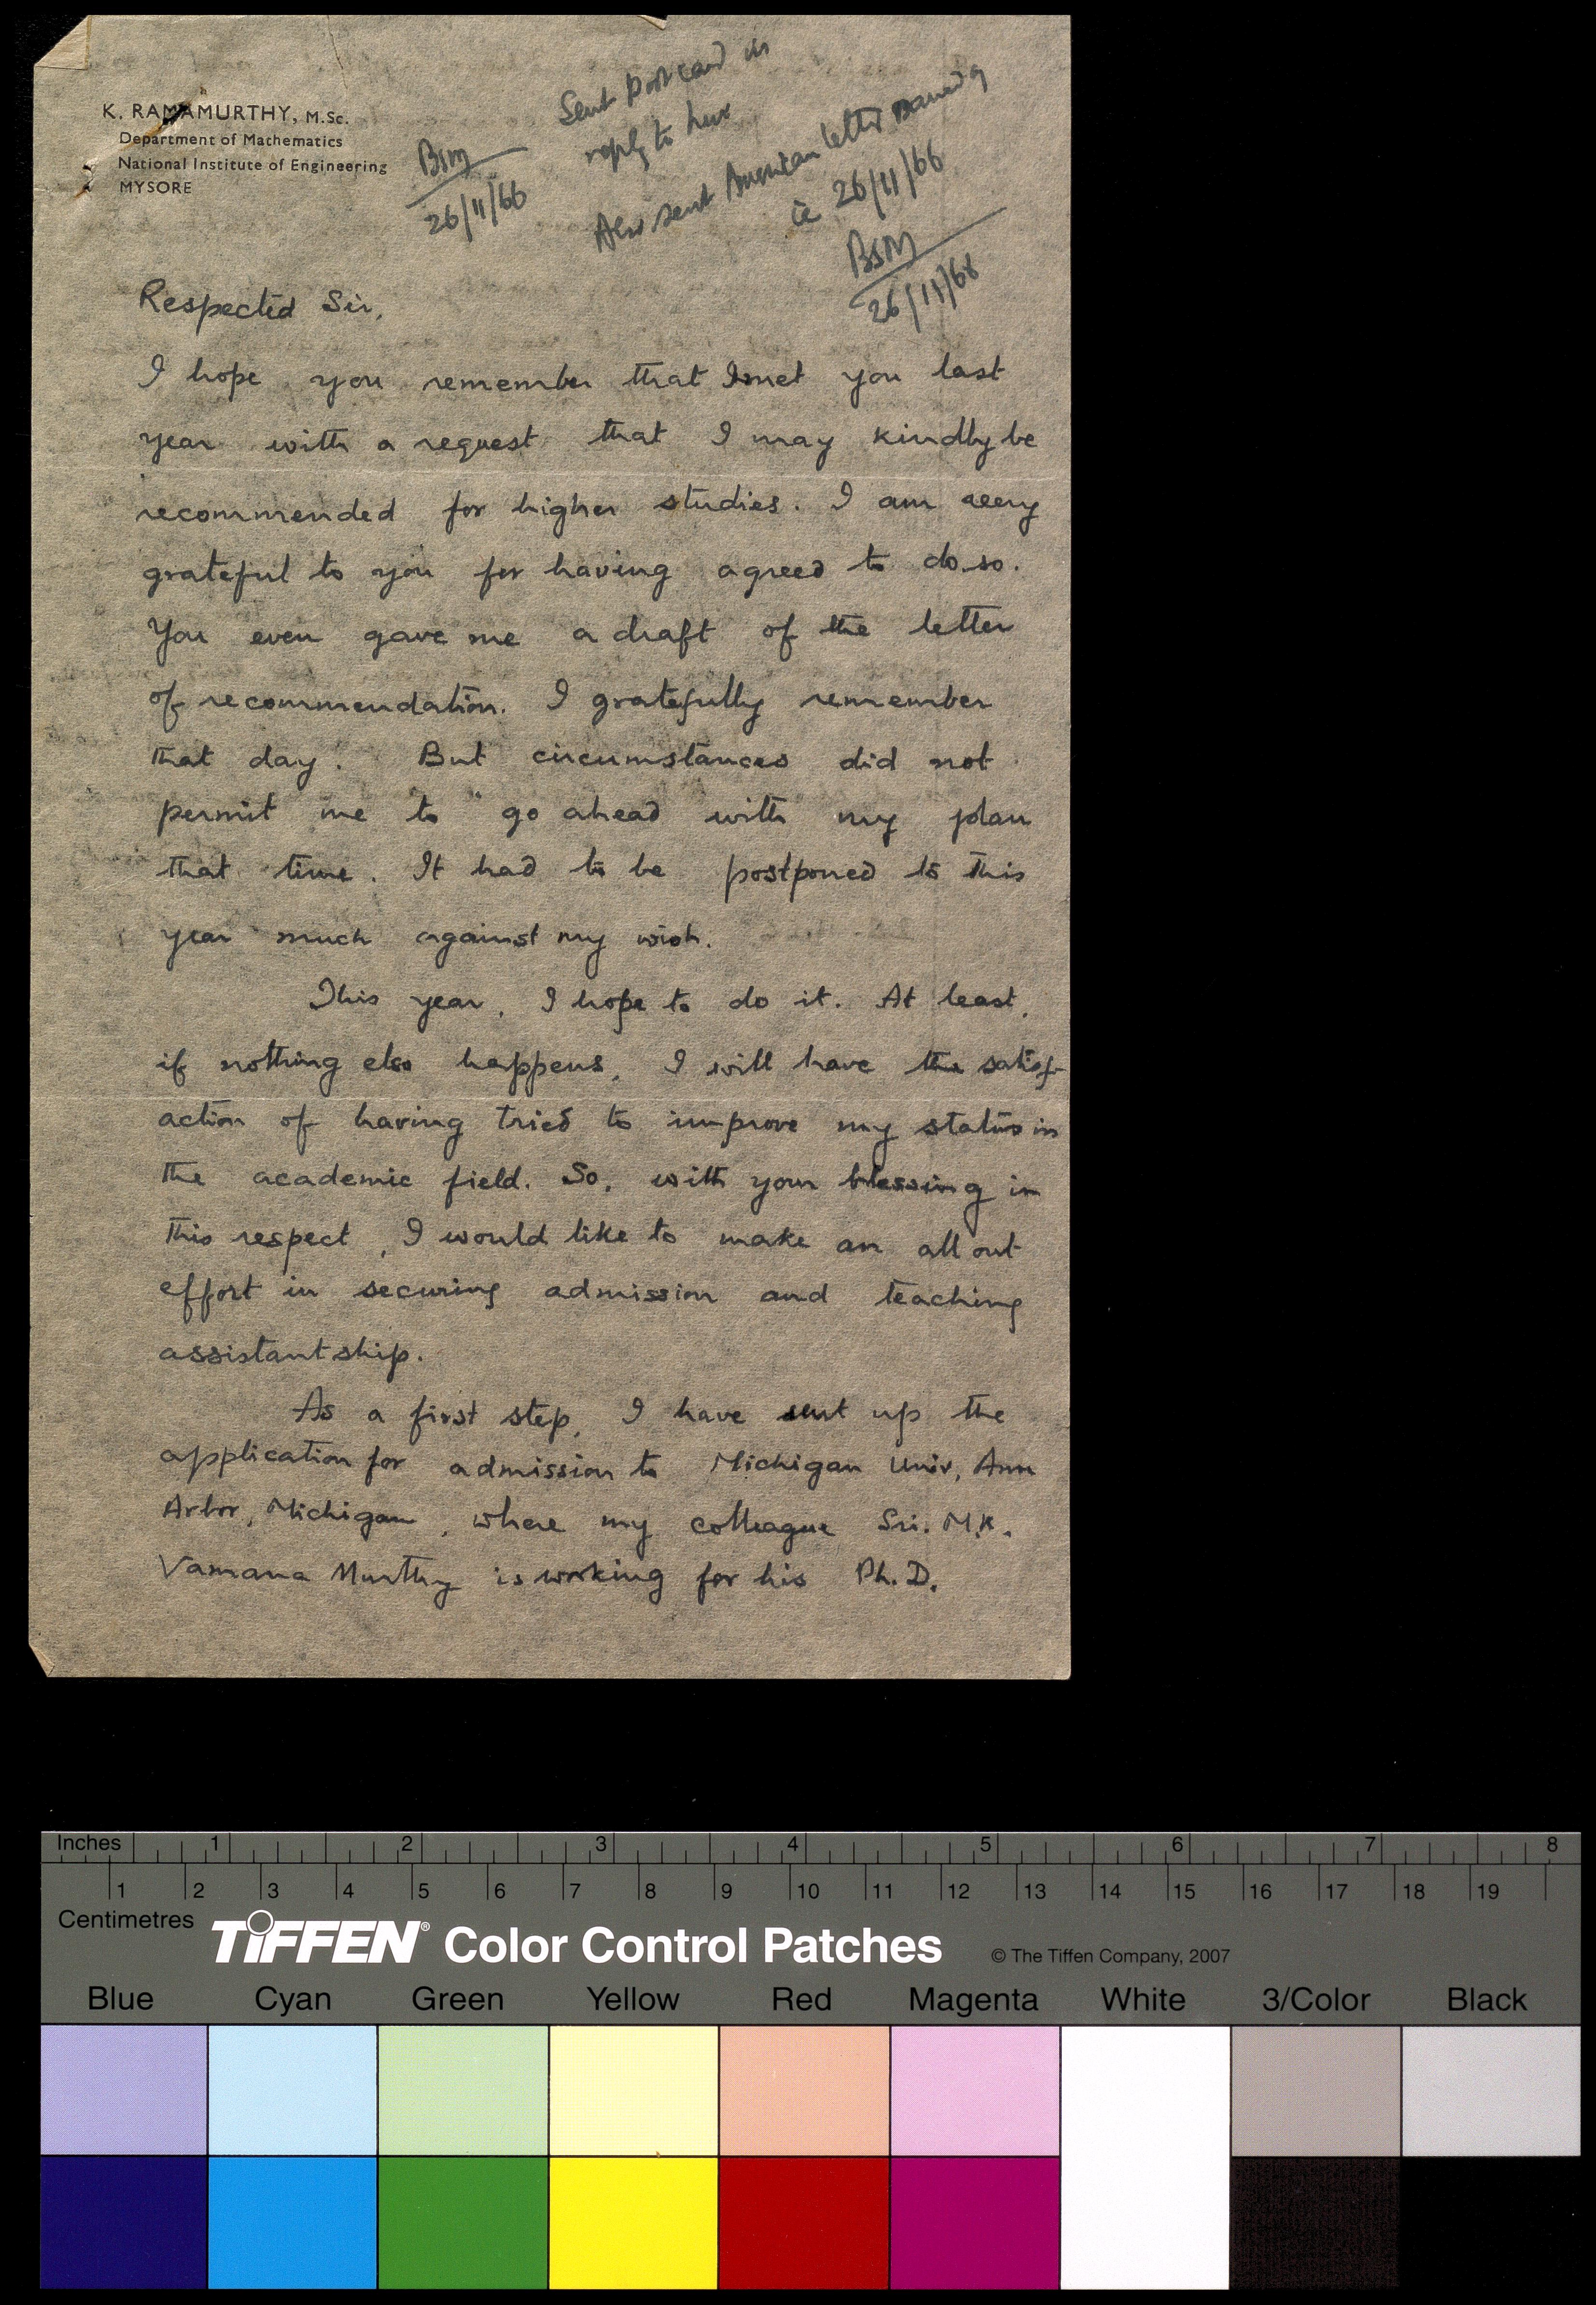 K. RAMAMURTHY, M.Sc.
Department of Mathematics
National Institute of Engineering
MYSORE
BSM
26/11/66
Sent Post card in
reply to
Also sent American letter
ie 26/11/66
BSM
26/11/66
Respected Sir,
I hope you remember that I met you last
year with a request that I may kindly be
recommended for higher studies. I am very
grateful to you for having agreed to do so.
You even gave me a draft of the letter
of recommendation. I gratefully remember
that day. But circumstances did not
permit me to go ahead with my plan
that time. It had to be postponed to this
year much against my wish.
This year, I hope to do it. At least,
if nothing else happens, I will have the satisf-
action of having tried to improve my status in
the academic field. So, with your blessing in
this respect, I would like to make an all out
effort in securing admission and teaching
assistantship.
As a first step, I have sent up the
application for admission to Michigan Univ, Ann
Arbor, Michigan, where my colleague Sri. M.K.
Vamana Murthy is working for his Ph.D.
Inches 1 2 3 4 5 6 7 8
1 2 3 4 5 6 7 8 9 10 11 12 13 14 15 16 17 18 19
Centimetres
TIFFEN® Color Control Patches © The Tiffen Company, 2007
Blue Cyan Green Yellow Red Magenta White 3/Color Black